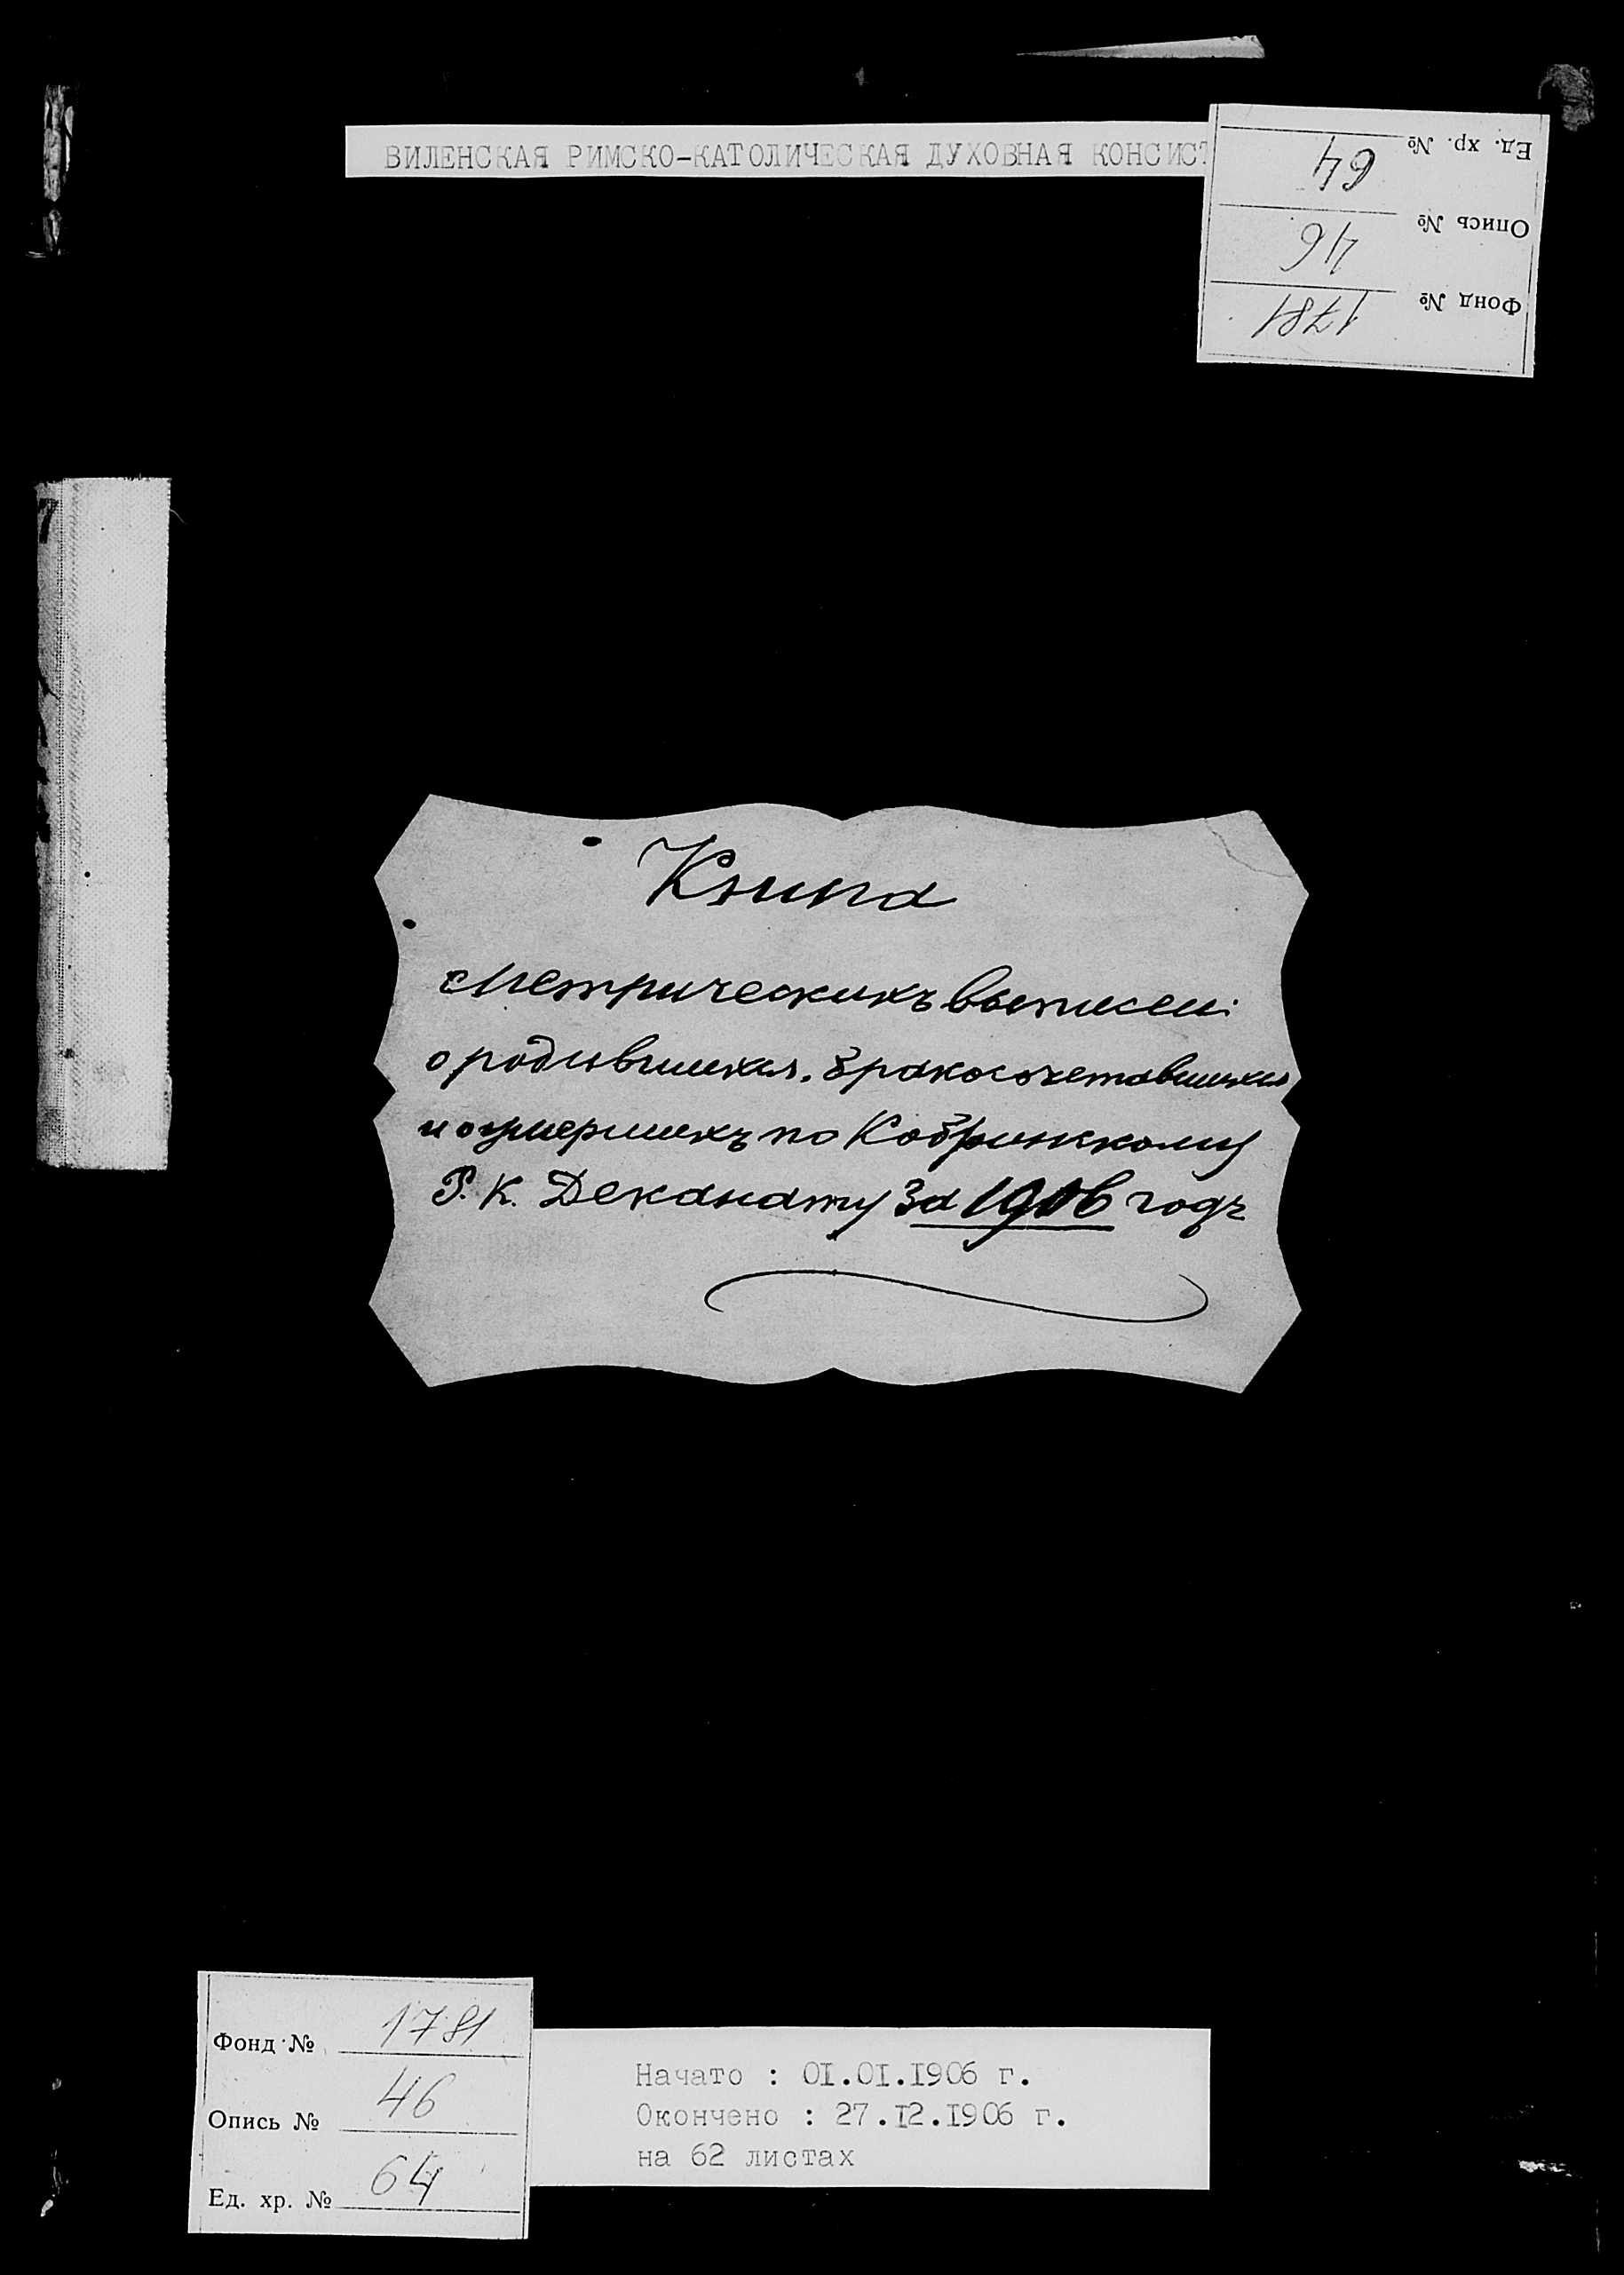 ВИЛЕНСКАЯ РИМСКО-КАТОЛИЧЕСКАЯ ДУХОВНАЯ КОНСИСТ
Фонд № 1781
Опись № 46
Ед. хр. № 64
7
Книга
Метрическихъ выписей
о родившихся, бракосочетавшихся
и о умершихъ по Кобринскому
Р. К. Деканату за 1906 годъ
Фонд № 1781
Опись № 46
Ед. хр. № 64
Начато : 01.01.1906 г.
Окончено : 27.12.1906 г.
на 62 листах